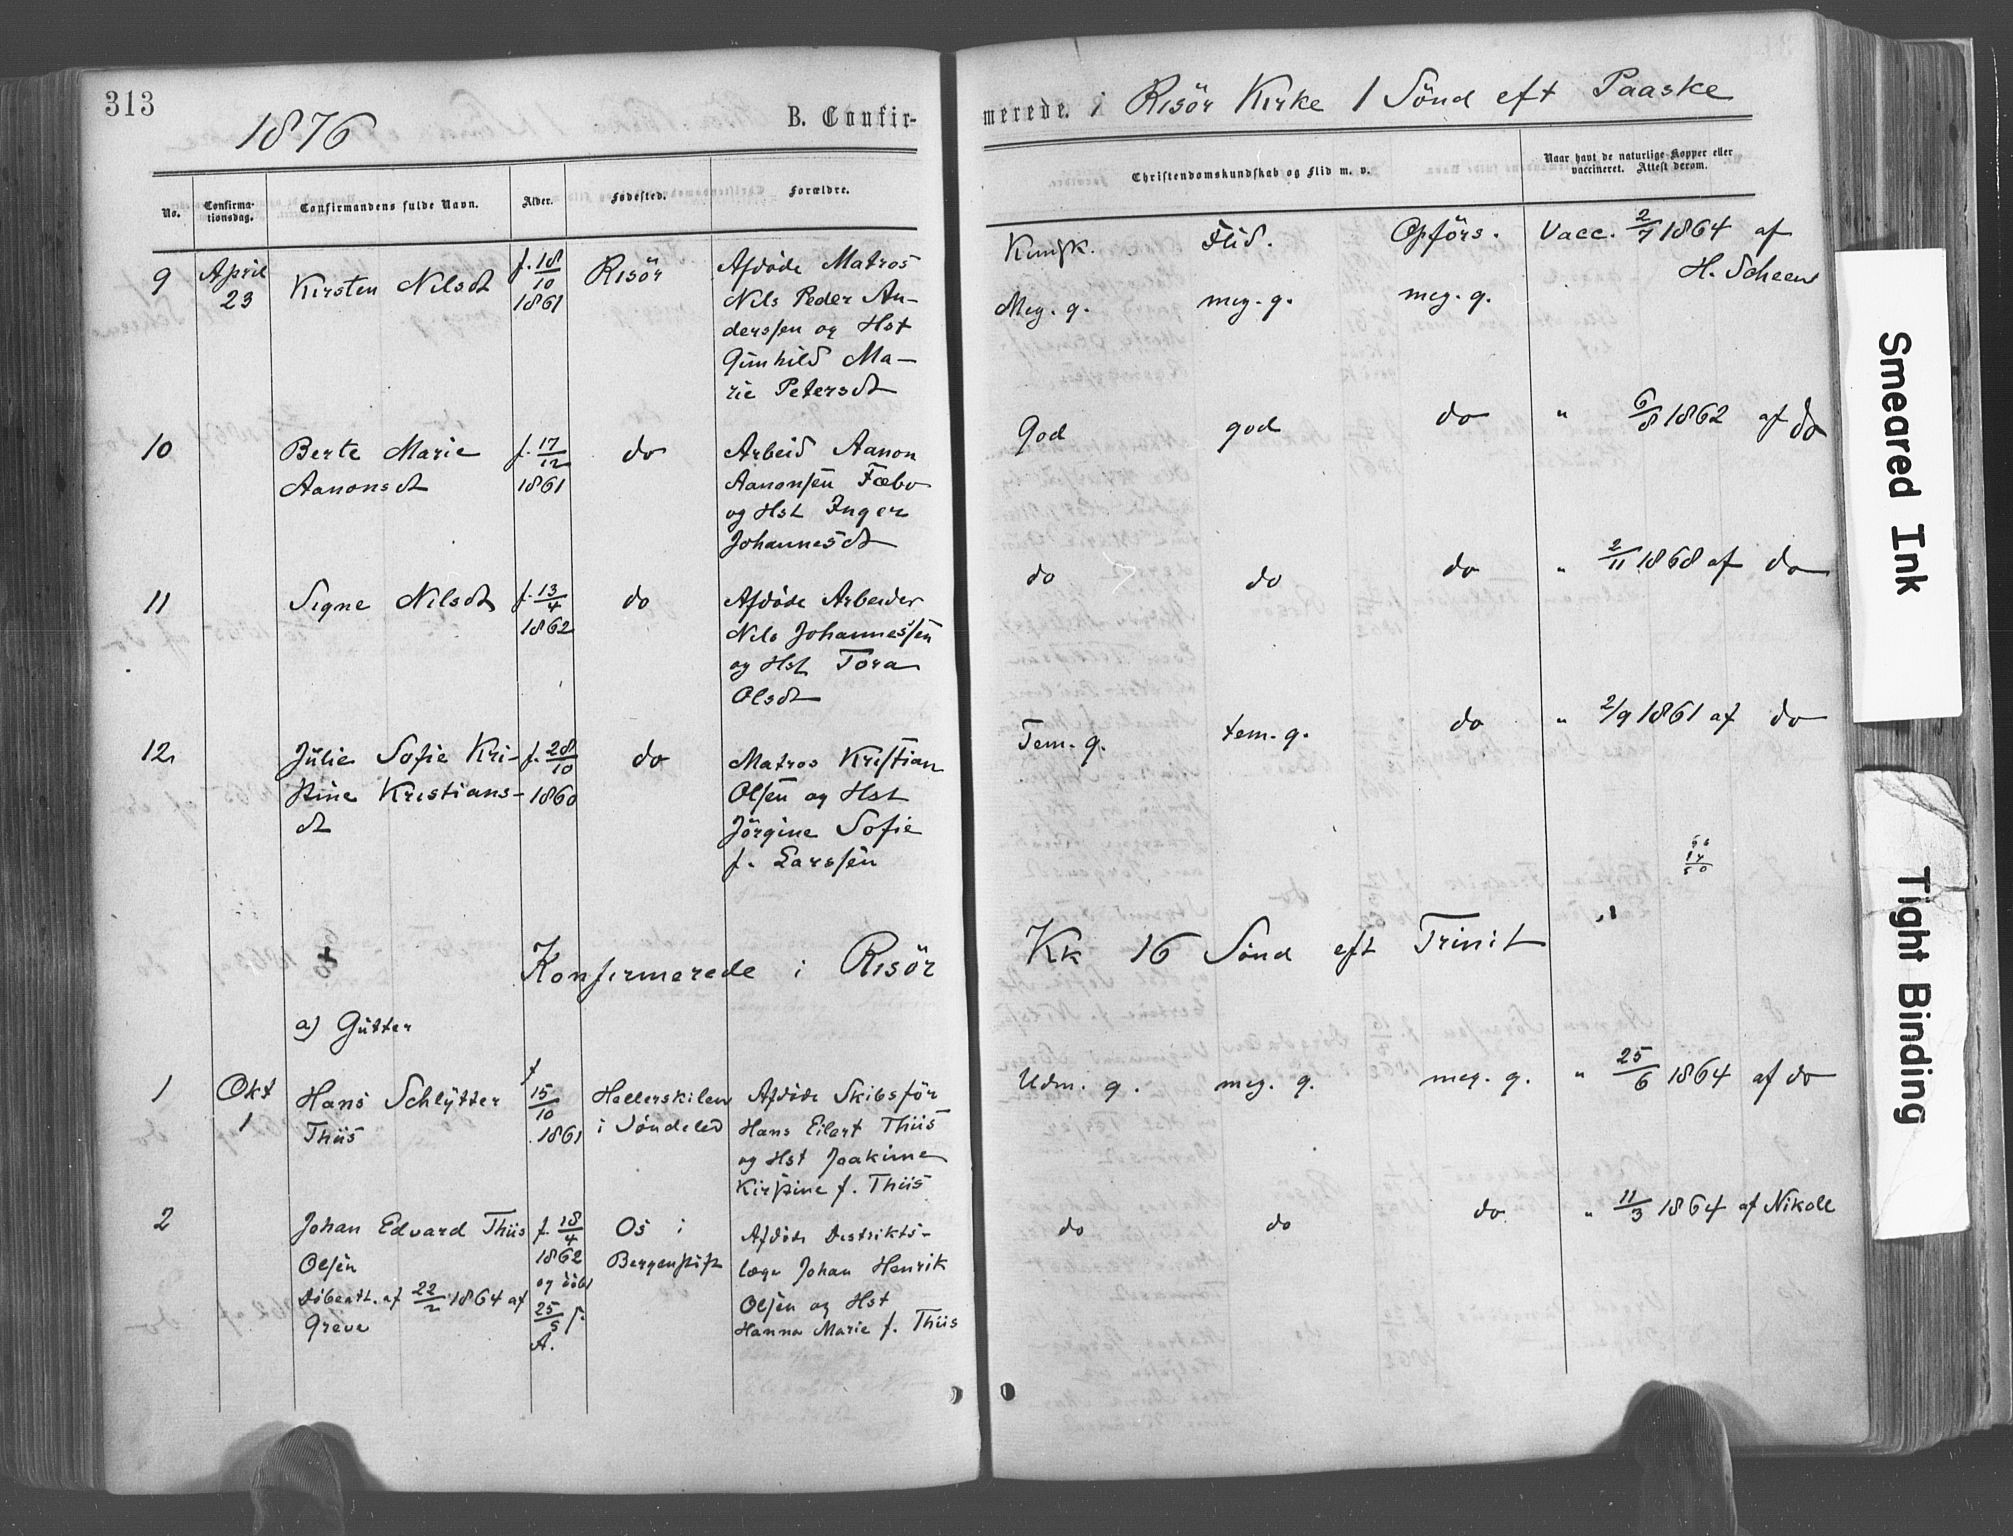 313
1876
B. Confirmerede. i Risör Kirke 1 Sönd eft Paaske
No.
Confirmationsdag.
Confirmandens fulde Navn.
Alder.
Fødested.
Forældre.
Christendomskundskab og Flid m. v.
Naar havt de naturlige Kopper eller vaccineret. Attest derom.
Kundsk. Flid. Opförs.
9
April
23
Kirsten Nilsdt
f. 18/10
1861
Risör
Afdöde Matros
Nils Peder An-
derssen og Hst
Gunhild Ma-
rie Petersdt
Meg. g. meg. g. meg. g.
Vacc. 2/7 1864 af
H. Scheen
10
Berte Marie
Aanonsdt
f. 17/12
1861
do
Arbeid Aanon
Aanonsen Fæbo
og Hst Inger
Johannesdt
God god do " 6/8 1862 af do
11
Signe Nilsdt
f. 13/4
1862
do
Afdöde Arbeider
Nils Johannessen
og Hst Tora
Olsdt
do do do " 2/11 1868 af do
12
Julie Sofie Kri-
stine Kristians-
dt
f. 28/10
1860
do
Matros Kristian
Olsen og Hst
Jörgine Sofie
f. Larssen
Tem. g. tem. g. do " 2/9 1861 af do
Konfirmerede i Risör Kk 16 Sönd eft Trinit
a) Gutter
1
Okt
1
Hans Schlytter
Thiis
f
15/10
1861
Hellerskilen
i Söndeled
Afdöde Skibsför
Hans Eilert Thiis
og Hst Joakime
Kirstine f. Thiis
Udm. g. meg. g. meg. g. " 25/6 1864 af do
2
Johan Edvard Thiis
Olsen
Döbeatt. af 22/2 1864 af
Greve
f. 18/4
1862
og döbt
25/5 s.
A.
Os i
Bergenstift
Afdöde Distrikts-
læge Johan Henrik
Olsen og Hst
Hanna Marie f. Thiis
do do do " 11/3 1864 af Nikoll
Smeared Ink
Tight Binding